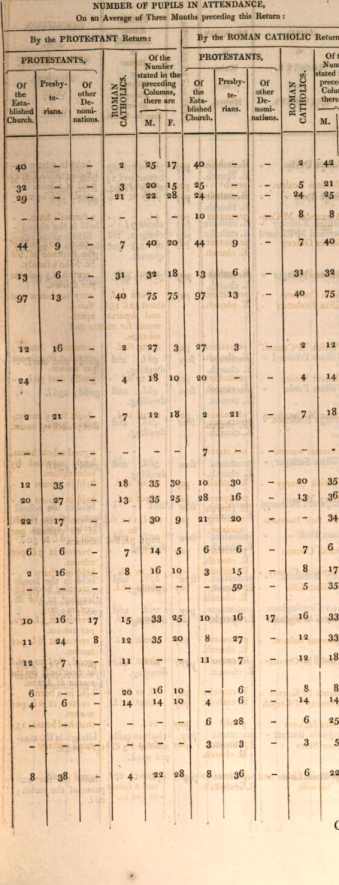 NUMBER OF PUPILS IN ATTENDANCE,
On an Average of Three Months preceding this Return:
By the PROTESTANT Return: By the ROMAN CATHOLIC Return
PROTESTANTS, ROMAN CATHOLICS. Of the Number stated in the preceding Columns, there are PROTESTANTS, ROMAN CATHOLICS.
Of the Esta-blished Church. Presby-te-rians. Of other De-nomi-nations. M. F. Of the Esta-blished Church. Presby-te-rians. Of other De-nomi-nations. M.
40 – – 2 25 17 40 – – 2 42
32 – – 3 20 15 25 – – 5 21
29 – – 21 22 28 24 – – 24 25
– – – – – – 10 – – 8 8
44 9 – 7 40 20 44 9 – 7 40
13 6 – 31 32 18 13 6 – 31 32
97 13 – 40 75 75 97 13 – 40 75
12 16 – 2 27 3 27 3 – 2 12
24 – – 4 18 10 20 – – 4 14
2 21 – 7 12 18 2 21 – 7 18
– – – – – – 7 – – – -
12 35 – 18 35 30 10 30 – 20 35
20 27 – 13 35 25 28 16 – 13 36
22 17 – – 30 9 21 20 – – 34
6 6 – 7 14 5 6 6 – 7 6
2 16 – 8 16 10 3 15 – 8 17
– – – – – – – 50 – 5 35
10 16 17 15 33 25 10 16 17 16 33
11 24 8 12 35 20 8 27 – 12 33
12 7 – 11 – – 11 7 – 12 18
6 – – 20 16 10 – 6 – 8 8
4 6 – 14 14 10 4 6 – 14 14
– – – – – – 6 28 – 6 25
– – – – – – 3 3 – 3 5
8 38 – 4 22 28 8 36 – 6 22